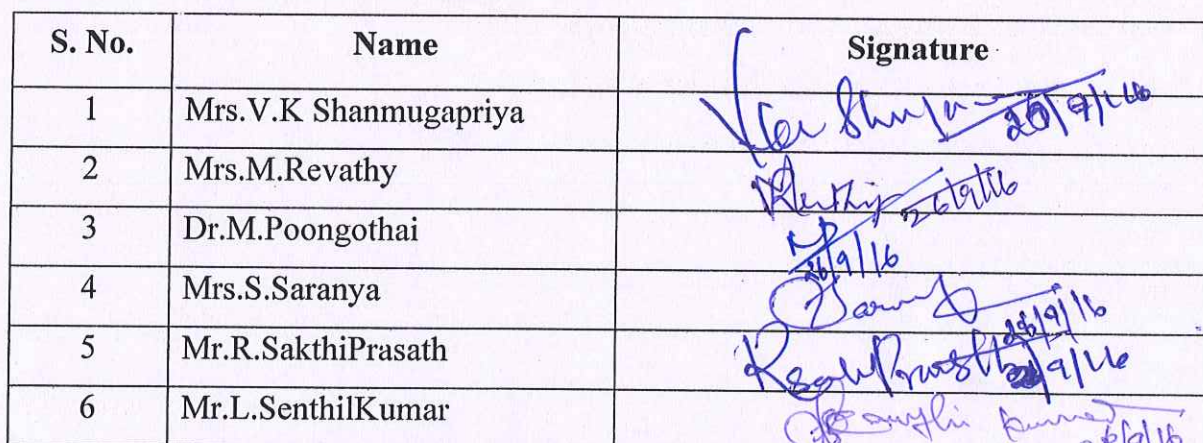 S. No. Name Signature
1 Mrs.V.K Shanmugapriya
2 Mrs.M.Revathy 26/9/16
3 Dr.M.Poongothai 26/9/16
4 Mrs.S.Saranya 26/9/16
5 Mr.R.SakthiPrasath
6 Mr.L.SenthilKumar